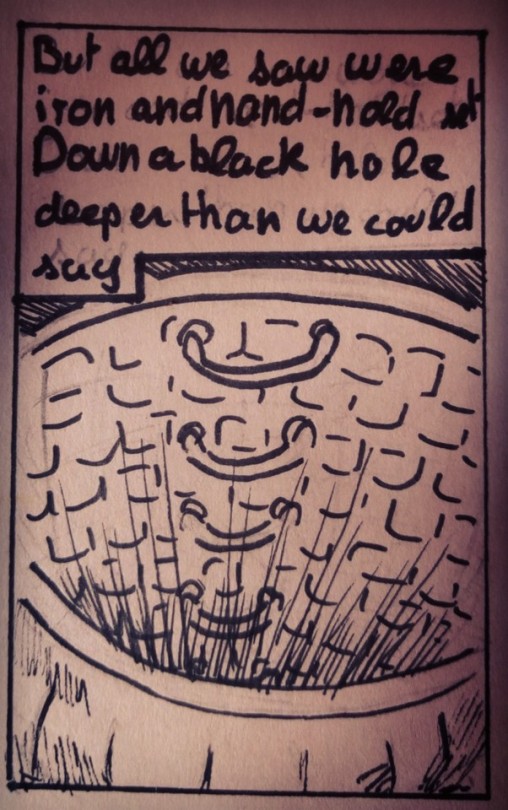 But all we saw were
iron and hand-hold set
Down a black hole
deeper than we could
say